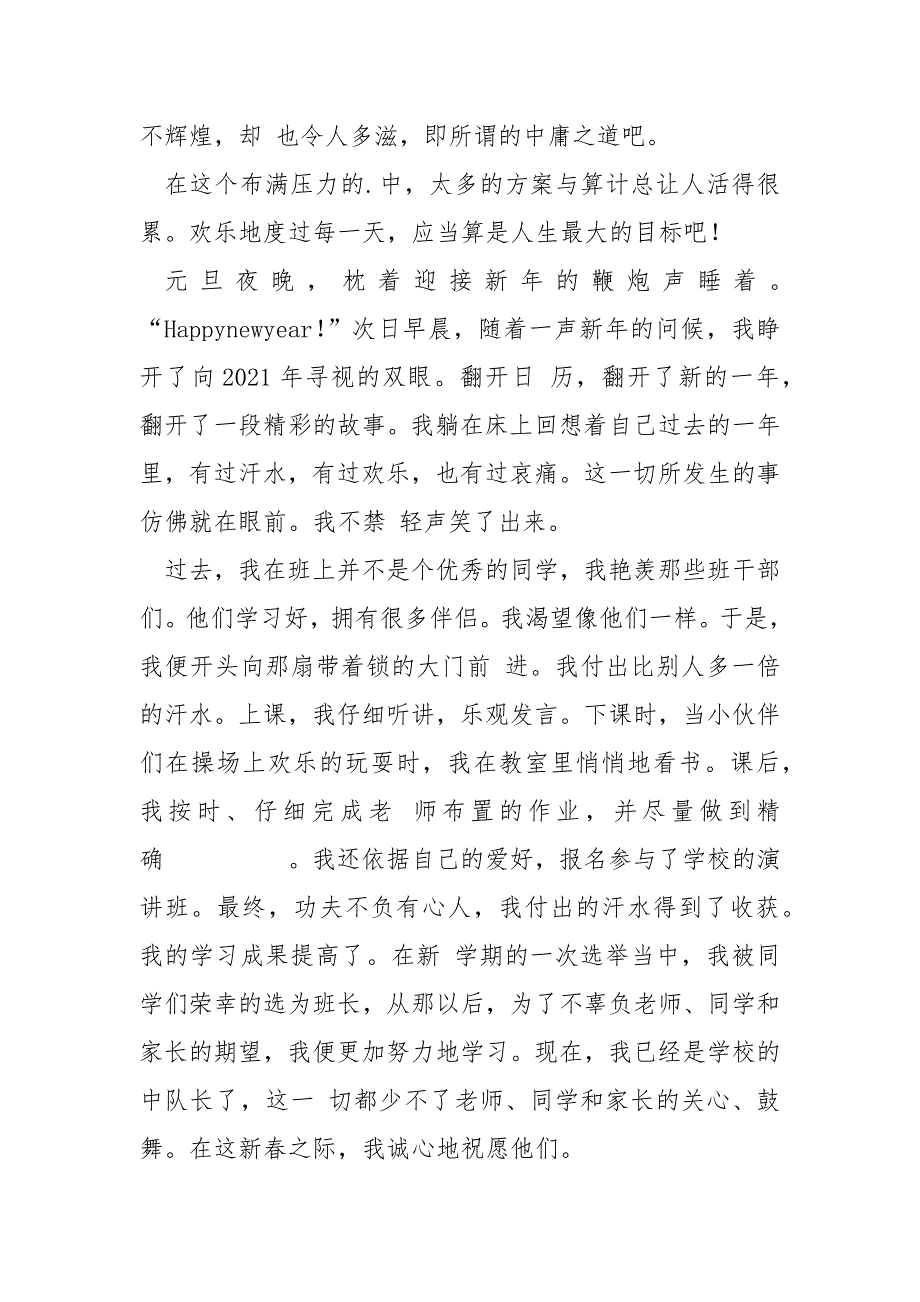 不辉煌，却 也令人多滋，即所谓的中庸之道吧。
在这个布满压力的.中，太多的方案与算计总让人活得很
累。欢乐地度过每一天，应当算是人生最大的目标吧！
元旦夜晚，枕着迎接新年的鞭炮声睡着。
“Happynewyear！”次日早晨，随着一声新年的问候，我睁
开了向 2021 年寻视的双眼。翻开日 历，翻开了新的一年，
翻开了一段精彩的故事。我躺在床上回想着自己过去的一年
里，有过汗水，有过欢乐，也有过哀痛。这一切所发生的事
仿佛就在眼前。我不禁 轻声笑了出来。
过去，我在班上并不是个优秀的同学，我艳羡那些班干部
们。他们学习好，拥有很多伴侣。我渴望像他们一样。于是，
我便开头向那扇带着锁的大门前 进。我付出比别人多一倍
的汗水。上课，我仔细听讲，乐观发言。下课时，当小伙伴
们在操场上欢乐的玩耍时，我在教室里悄悄地看书。课后，
我按时、仔细完成老 师布置的作业，并尽量做到精
确 。我还依据自己的爱好，报名参与了学校的演
讲班。最终，功夫不负有心人，我付出的汗水得到了收获。
我的学习成果提高了。在新 学期的一次选举当中，我被同
学们荣幸的选为班长，从那以后，为了不辜负老师、同学和
家长的期望，我便更加努力地学习。现在，我已经是学校的
中队长了，这一 切都少不了老师、同学和家长的关心、鼓
舞。在这新春之际，我诚心地祝愿他们。